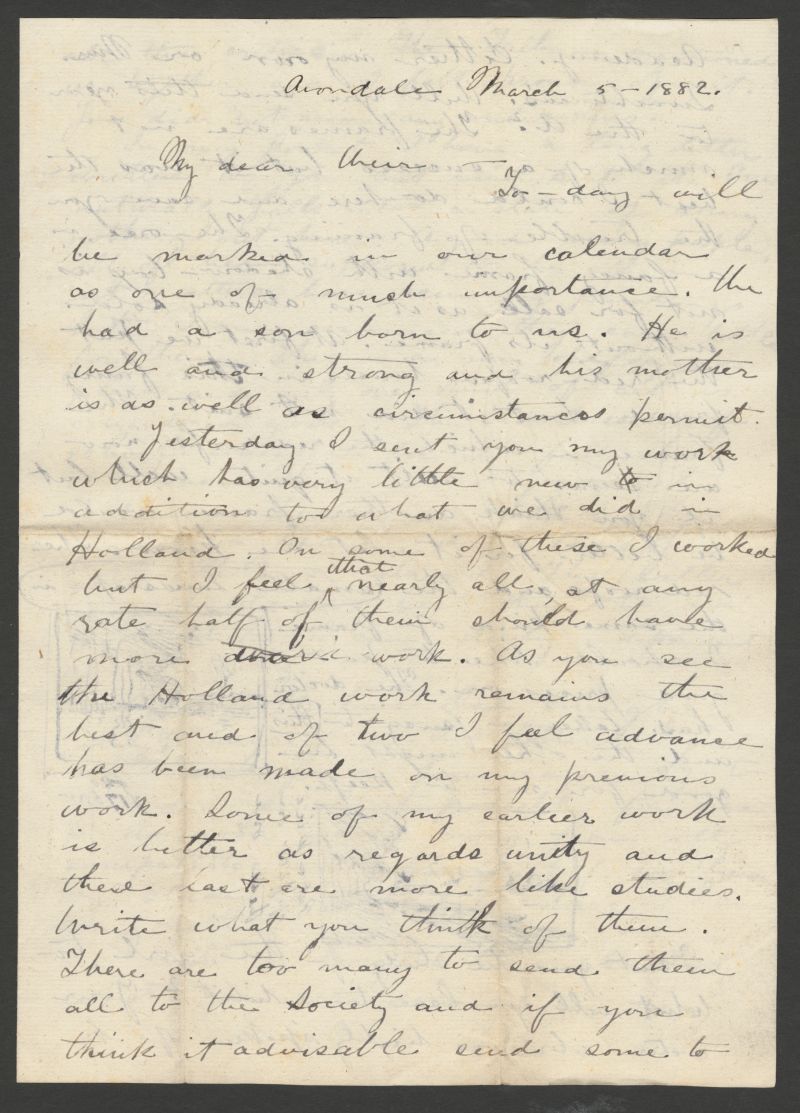 Avondale March 5 - 1882.
My dear Weir -
To-day will
be marked in our calendar
as one of much importance. We
had a son born to us. He is
well and strong and his mother
is as well as circumstances permit.
Yesterday I sent you my work
which has very little new in
addition to what we did in
Holland. On some of these I worked
but I feel that nearly all, at any
rate half of them should have
more work. As you see
the Holland work remains the
best and of two I feel advance
has been made on my previous
work. Some of my earlier work
is better as regards unity and
these last are more like studies.
Write what you think of them.
There are too many to send them
all to the Society and if you
think it advisable send some to